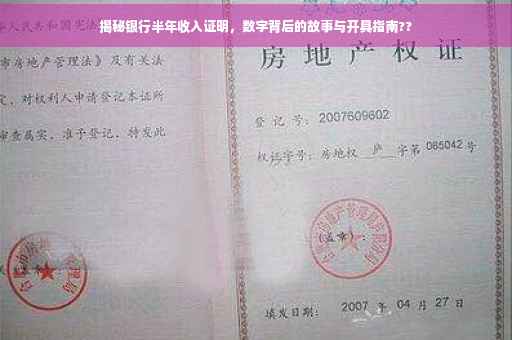 揭秘银行半年收入证明，数字背后的故事与开具指南??
人民共和国宪法
市房地产管理法》及有关法
定，对权利人申请登记本证所
审查属实，准予登记，特发此
房地产权证
登 记 号：2007609602
权证字号：房地权 庐 字第 085042 号
（盖章）：
填发日期：2007 年 04 月 27 日